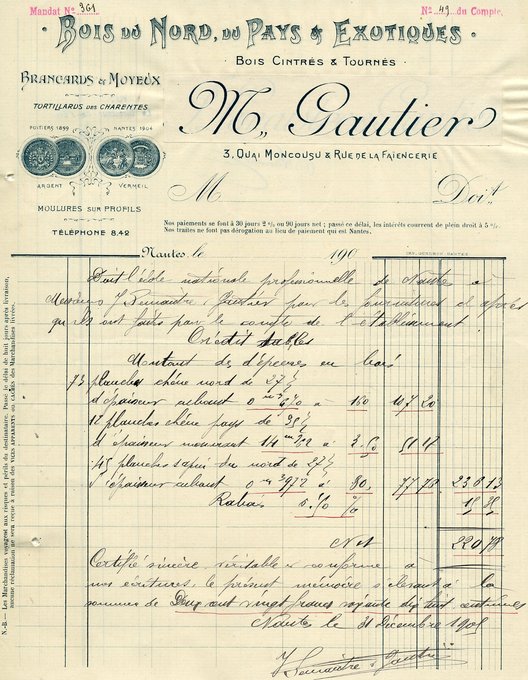 Mandat Nº 361
Nº 49 du Compte
BOIS DU NORD, DU PAYS & EXOTIQUES
BOIS CINTRÉS & TOURNÉS
BRANCARDS & MOYEUX
TORTILLARDS DES CHARENTES
POITIERS 1899
NANTES 1904
ARGENT
VERMEIL
MOULURES SUR PROFILS
TÉLÉPHONE 8.42
M. Gautier
3, QUAI MONCOUSU & RUE DE LA FAIENCERIE
M
Doit
Nos paiements se font à 30 jours 2 % ou 90 jours net ; passé ce délai, les intérêts courrent de plein droit à 5 %.
Nos traites ne font pas dérogation au lieu de paiement qui est Nantes.
Nantes le 190
Doit l'école nationale professionnelle de Nantes à
Messieurs J. Lemaistre, Gautier pour les fournitures ci après
qu'ils ont faits pour le compte de l'établissement
Crédit
Montant des dépenses en bois
73 planches chêne nord de 27
d'épaisseur cubant 0 m 670 à 160 107 20
12 planches chêne pays de 35
d'épaisseur mesurant 14 m à 3.50
45 planches sapin du nord de 27
d'épaisseur cubant 0 972 à 80 77.78 230 13
Rabais %
Net 220 78
Certifié sincère véritable et conforme à
nos écritures le présent mémoire s'élevant à la
somme de Deux cent vingt francs soixante dix huit centimes
Nantes le 31 décembre
N.-B. — Les Marchandises voyagent aux risques et périls du destinataire. Passé le délai de huit jours après livraison,
aucune réclamation ne sera reçue à raison des VICES APPARENTS OU CACHÉS des Marchandises livrées.